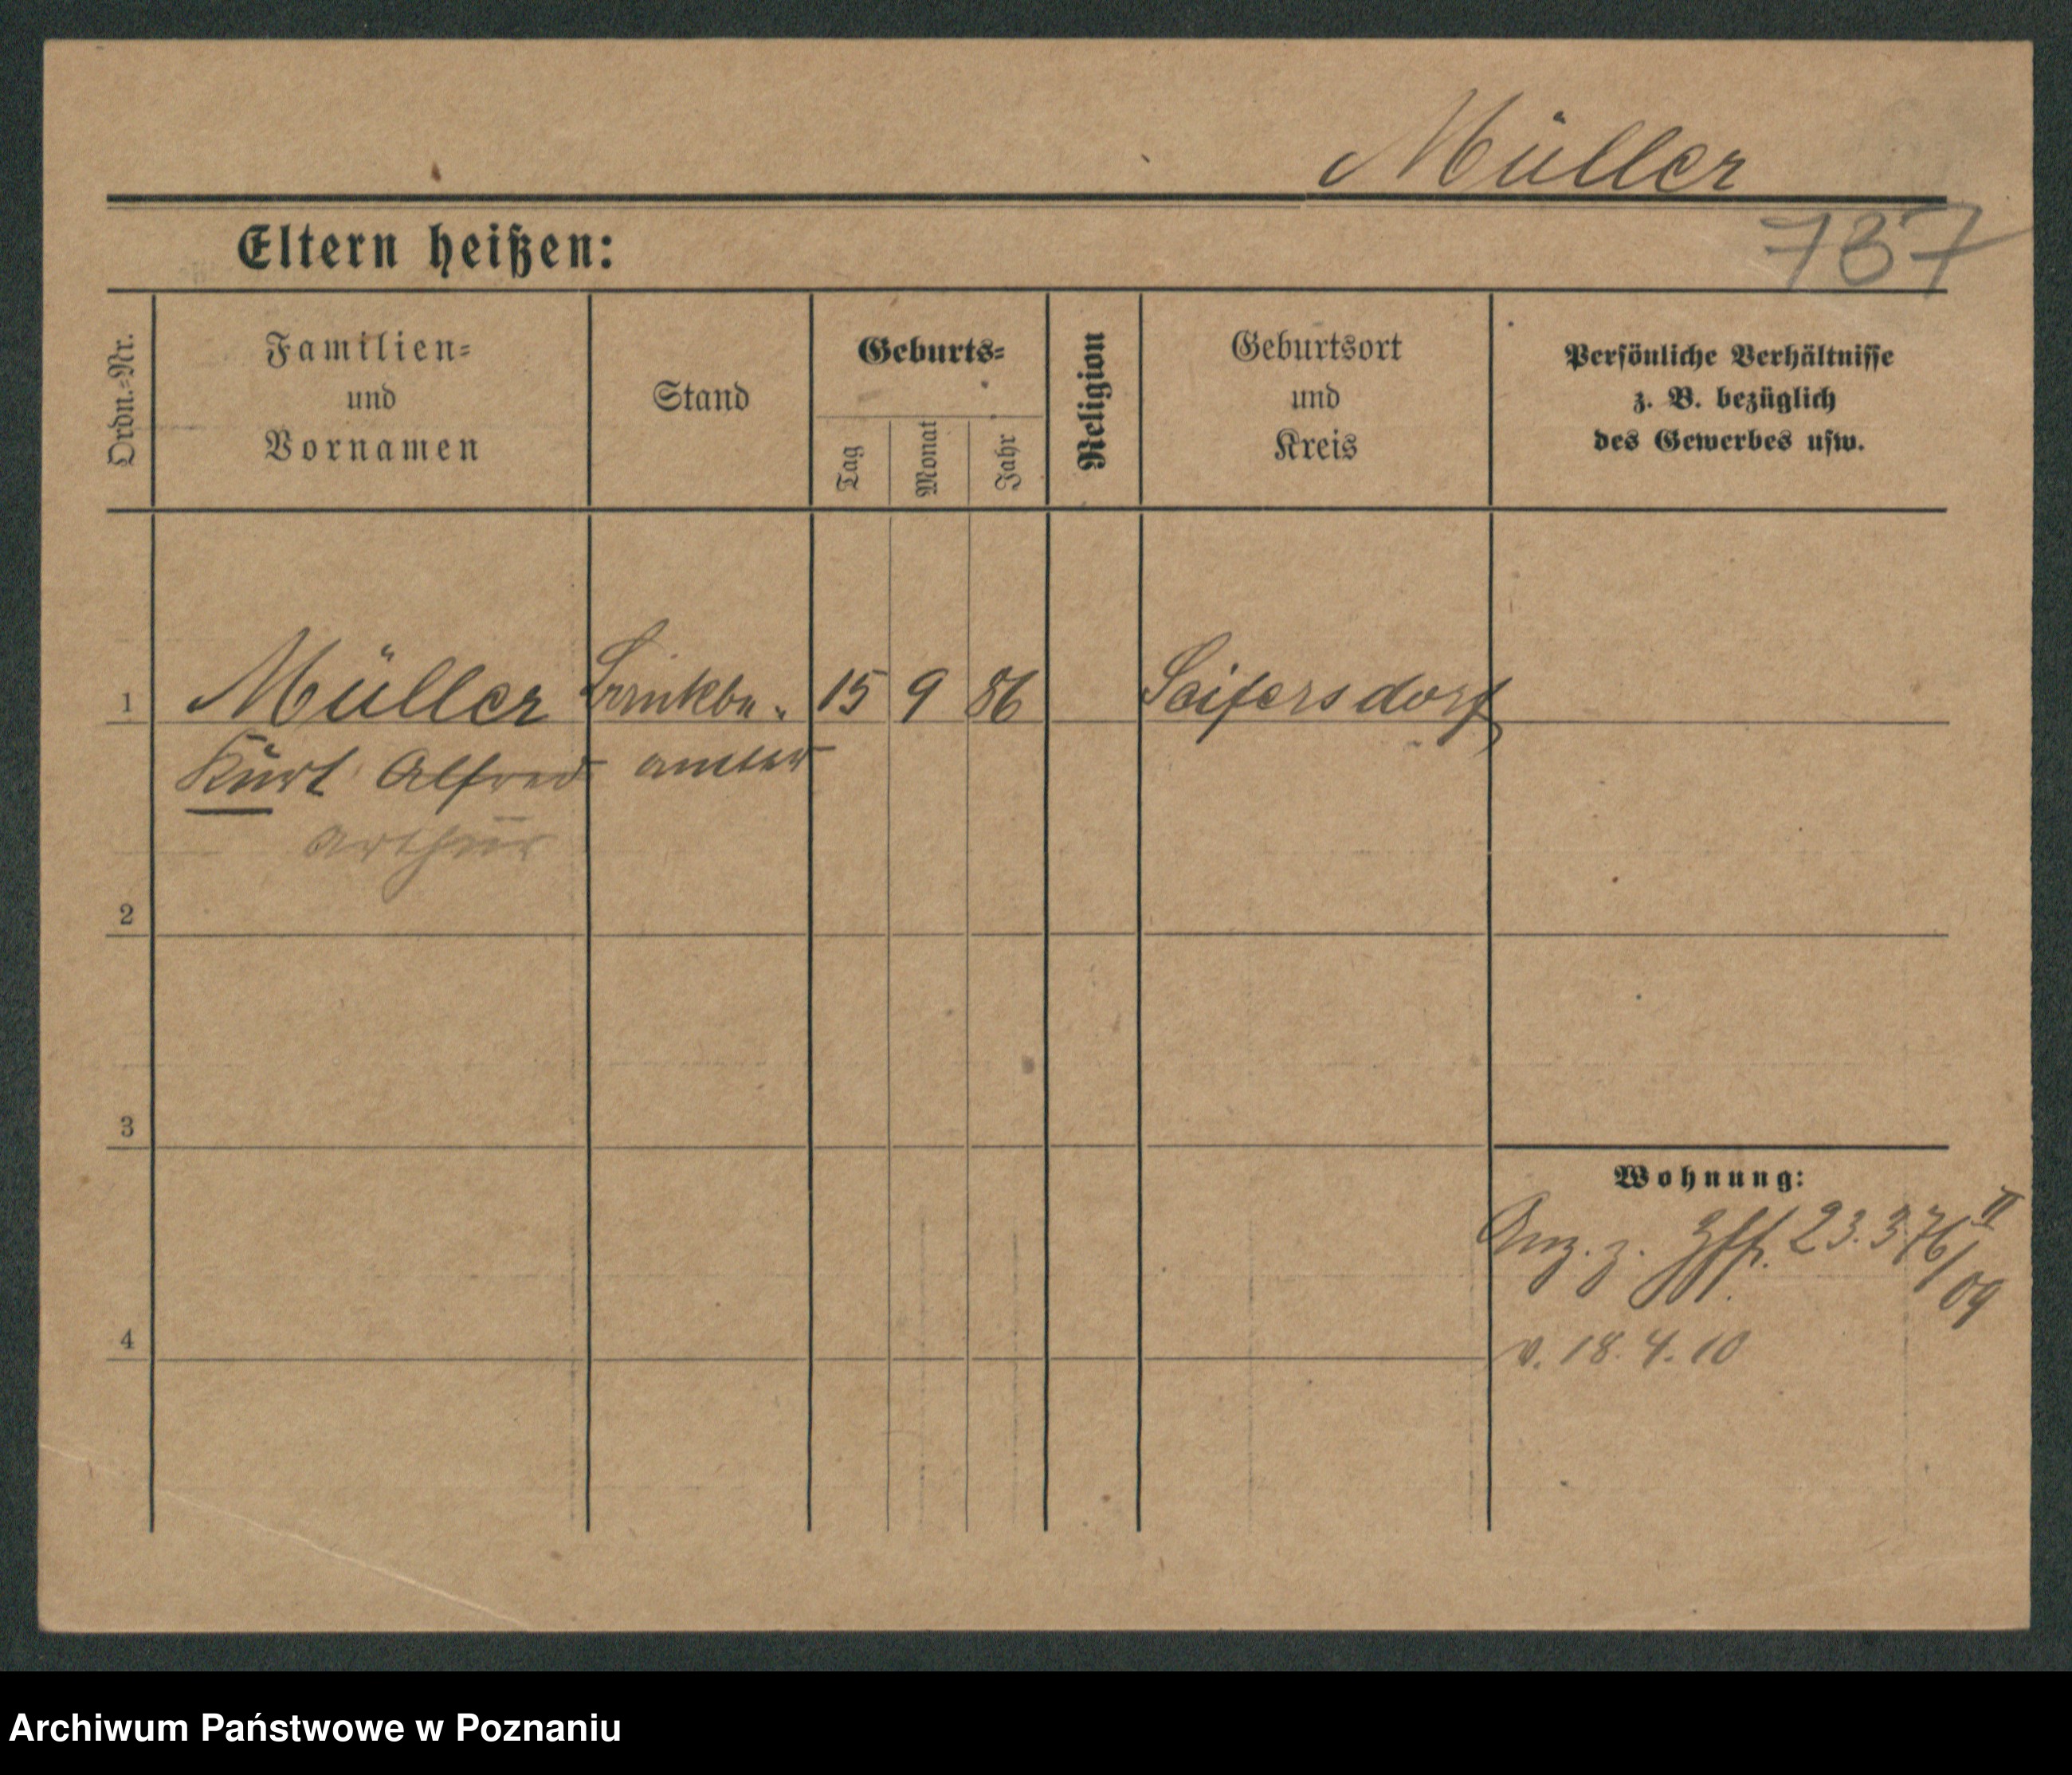 Müller
Eltern heißen:
737
Ordn.-Nr.
Familien-
und
Vornamen
Stand
Geburts-
Tag
Monat
Jahr
Religion
Geburtsort
und
Kreis
Persönliche Verhältnisse
z. B. bezüglich
des Gewerbes usw.
1 Müller Bankbe- 15 9 86 Seifersdorf
Kurt Alfred amter
Arthur
2
3
Wohnung:
Anz. z. 23.376/09 II
4
v. 18.4.10
Archiwum Państwowe w Poznaniu